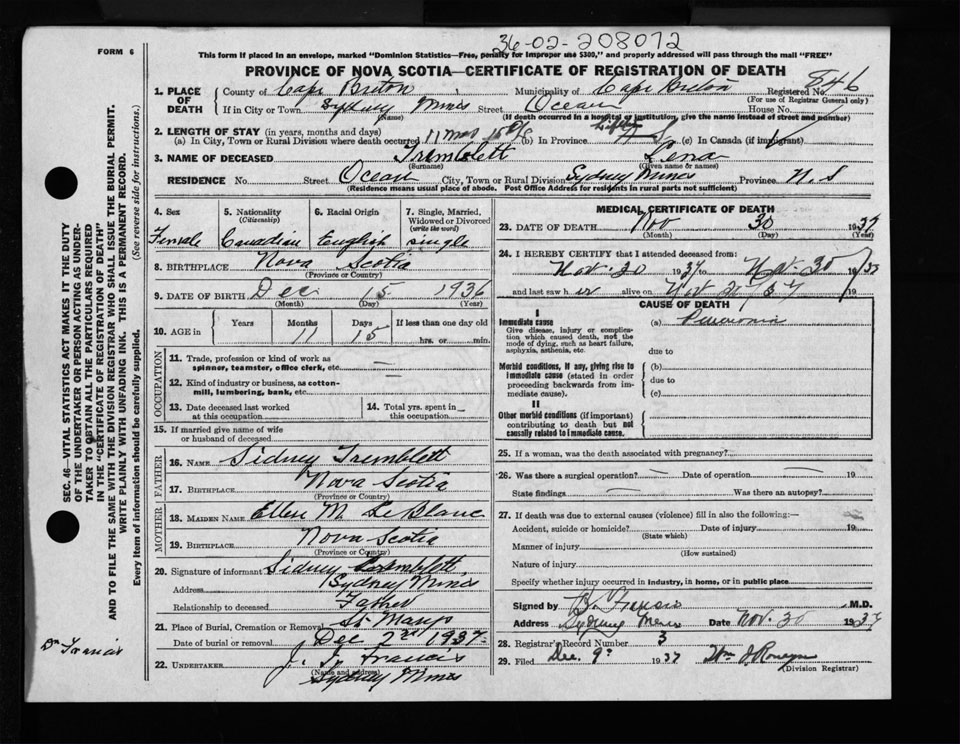 36-02-208072
FORM 6
This form if placed in an envelope, marked "Dominion Statistics—Free, penalty for improper use $300," and properly addressed will pass through the mail "FREE"
PROVINCE OF NOVA SCOTIA—CERTIFICATE OF REGISTRATION OF DEATH
846
1. PLACE OF DEATH
County of Cape Breton Municipality of Cape Breton Registered No.
(For use of Registrar General only)
If in City or Town Sydney Mines Street Ocean House No.
(Name) (If death occurred in a hospital or institution, give the name instead of street and number)
2. LENGTH OF STAY (in years, months and days)
(a) In City, Town or Rural Division where death occurred 11 mos 15 (b) In Province (c) In Canada (if immigrant)
3. NAME OF DECEASED Tremblett Lena
(Surname) (Given name or names)
RESIDENCE No. Street Ocean City, Town or Rural Division Sydney Mines Province N.S
(Residence means usual place of abode. Post Office Address for residents in rural parts not sufficient)
4. Sex Female
5. Nationality (Citizenship) Canadian
6. Racial Origin English
7. Single, Married, Widowed or Divorced (write the word) single
8. BIRTHPLACE Nova Scotia
(Province or Country)
9. DATE OF BIRTH Dec 15 1936
(Month) (Day) (Year)
10. AGE in Years Months 11 Days 15 If less than one day old hrs. or min.
OCCUPATION
11. Trade, profession or kind of work as spinner, teamster, office clerk, etc. —
12. Kind of industry or business, as cotton-mill, lumbering, bank, etc. —
13. Date deceased last worked at this occupation
14. Total yrs. spent in this occupation —
15. If married give name of wife or husband of deceased
FATHER
16. NAME Sidney Tremblett
17. BIRTHPLACE Nova Scotia
(Province or Country)
MOTHER
18. MAIDEN NAME Ellen M. LeBlanc
19. BIRTHPLACE Nova Scotia
(Province or Country)
20. Signature of informant Sidney Tremblett
Address Sydney Mines
Relationship to deceased Father
21. Place of Burial, Cremation or Removal St Marys
Date of burial or removal Dec 2nd 1937
22. UNDERTAKER J. Francis
(Name and address)
Sydney Mines
MEDICAL CERTIFICATE OF DEATH
23. DATE OF DEATH Nov 30 1937
(Month) (Day) (Year)
24. I HEREBY CERTIFY that I attended deceased from:
Nov. 20 1937 to Nov. 30 1937
and last saw her alive on Nov
CAUSE OF DEATH
I
Immediate cause
Give disease, injury or complication which caused death, not the mode of dying, such as heart failure, asphyxia, asthenia, etc.
(a) Pneumonia
due to
Morbid conditions, if any, giving rise to immediate cause (stated in order proceeding backwards from immediate cause).
(b)
due to
(c)
II
Other morbid conditions (if important) contributing to death but not causally related to immediate cause.
25. If a woman, was the death associated with pregnancy?
26. Was there a surgical operation? — Date of operation — 19
State findings — Was there an autopsy?
27. If death was due to external causes (violence) fill in also the following:
Accident, suicide or homicide? Date of injury 19
(State which)
Manner of injury
(How sustained)
Nature of injury
Specify whether injury occurred in industry, in home, or in public place
Signed by Francis M.D.
Address Sydney Mines Date Nov. 30 1937
28. Registrar's Record Number 3
29. Filed Dec. 9 1937 Wm J
(Division Registrar)
SEC. 46—VITAL STATISTICS ACT MAKES IT THE DUTY
OF THE UNDERTAKER OR PERSON ACTING AS UNDER-
TAKER TO OBTAIN ALL THE PARTICULARS REQUIRED
IN THE "CERTIFICATE OF REGISTRATION OF DEATH"
AND TO FILE THE SAME WITH THE DIVISION REGISTRAR WHO SHALL ISSUE THE BURIAL PERMIT.
WRITE PLAINLY WITH UNFADING INK. THIS IS A PERMANENT RECORD.
Every item of information should be carefully supplied. (See reverse side for instructions.)
Dr Francis